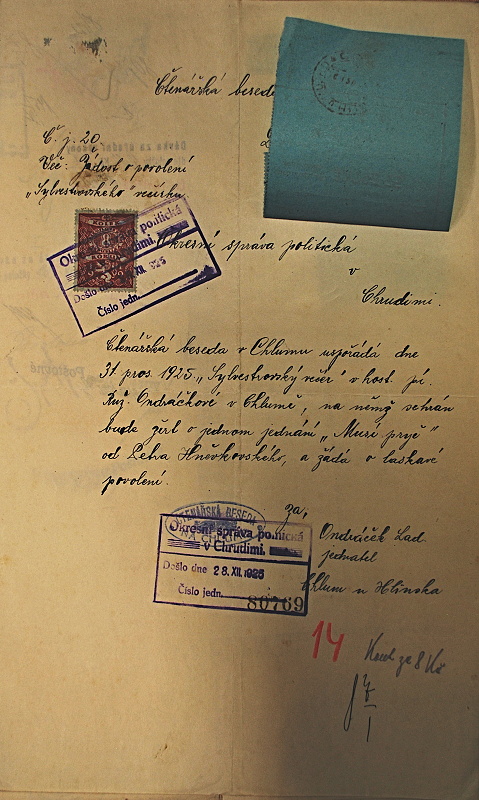 Čtenářská beseda
Č. j. 20
Věc: Žádost o povolení
„Sylvestrovského" večírku.
Okresní správa politická
v
Chrudimi.
Okresní správa politická
v Chrudimi.
Došlo dne XII. 1925
Číslo jedn.
Čtenářská beseda v Chlumu uspořádá dne
31 pros. 1925 „Sylvestrovský večer" v host. pí.
Růž. Ondráčkové v Chlumě, na němž sehrán
bude žert o jednom jednání „Musí pryč"
od Hněvkovského, a žádá o laskavé
povolení.
za,
ČTENÁŘSKÁ BESEDA
Okresní správa politická
v Chrudimi.
Došlo dne 28. XII. 1925
Číslo jedn. 80769
Ondráček Lad.
jednatel
Chlum u Hlinska
14
Kolek za 8 Kč